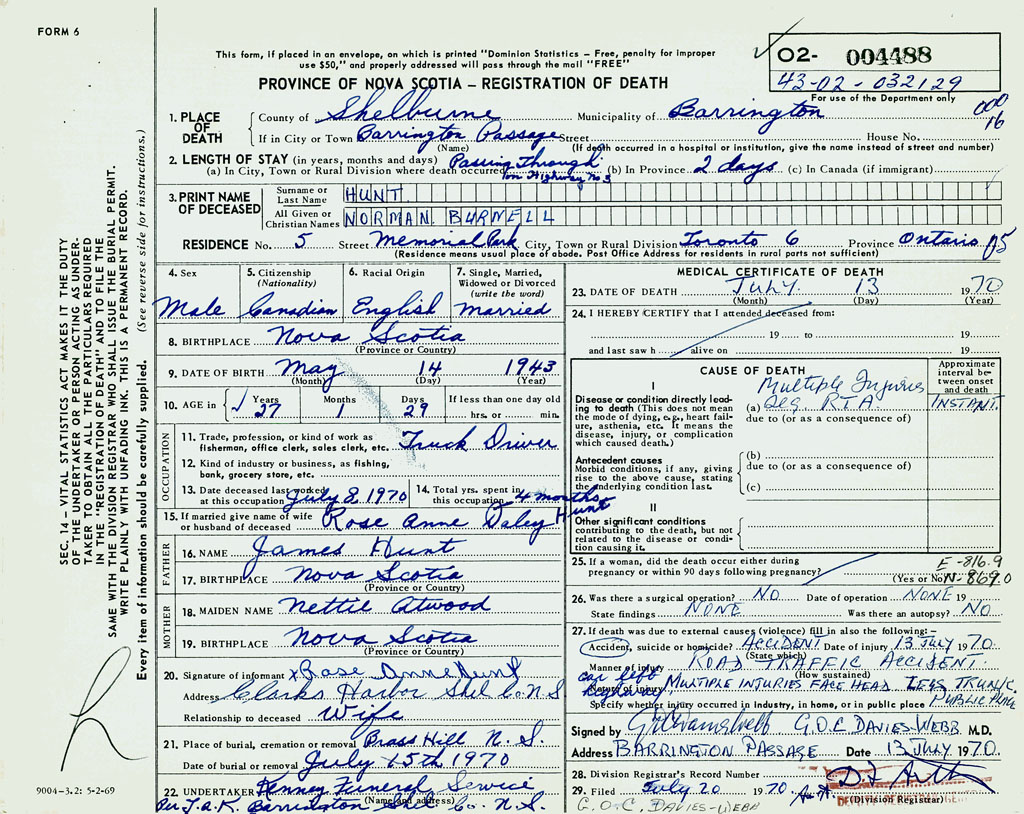 FORM 6
This form, if placed in an envelope, on which is printed "Dominion Statistics – Free, penalty for improper
use $50," and properly addressed will pass through the mail "FREE"
PROVINCE OF NOVA SCOTIA – REGISTRATION OF DEATH
02- 004488
43-02-032129
For use of the Department only
000
16
1. PLACE OF DEATH
County of Shelburne Municipality of Barrington
If in City or Town Barrington Passage Street House No.
(Name) (If death occurred in a hospital or institution, give the name instead of street and number)
2. LENGTH OF STAY (in years, months and days) Passing through
(a) In City, Town or Rural Division where death occurred on Highway No 3 (b) In Province 2 days (c) In Canada (if immigrant)
3. PRINT NAME OF DECEASED
Surname or Last Name HUNT
All Given or Christian Names NORMAN BURNELL
RESIDENCE No. 5 Street Memorial Park City, Town or Rural Division Toronto 6 Province Ontario 05
(Residence means usual place of abode. Post Office Address for residents in rural parts not sufficient)
4. Sex
Male
5. Citizenship (Nationality)
Canadian
6. Racial Origin
English
7. Single, Married, Widowed or Divorced (write the word)
Married
8. BIRTHPLACE Nova Scotia
(Province or Country)
9. DATE OF BIRTH May 14 1943
(Month) (Day) (Year)
10. AGE in Years Months Days If less than one day old
27 1 29 hrs. or min.
OCCUPATION
11. Trade, profession, or kind of work as fisherman, office clerk, sales clerk, etc. Truck Driver
12. Kind of industry or business, as fishing, bank, grocery store, etc.
13. Date deceased last worked at this occupation July 8, 1970
14. Total yrs. spent in this occupation 4 months
15. If married give name of wife or husband of deceased Rose Anne Daley Hunt
FATHER
16. NAME James Hunt
17. BIRTHPLACE Nova Scotia
(Province or Country)
MOTHER
18. MAIDEN NAME Nettie Atwood
19. BIRTHPLACE Nova Scotia
(Province or Country)
20. Signature of informant x Rose Anne Hunt
Address Clarks Harbor Shel Co. N.S
Relationship to deceased Wife
21. Place of burial, cremation or removal Brass Hill N.S.
Date of burial or removal July 15th 1970
22. UNDERTAKER Kenney Funeral Service
(Name and address)
Per J.A.K. Barrington Shel Co. N.S.
MEDICAL CERTIFICATE OF DEATH
23. DATE OF DEATH JULY 13 1970
(Month) (Day) (Year)
24. I HEREBY CERTIFY that I attended deceased from:
19 to 19
and last saw h alive on 19
CAUSE OF DEATH
Approximate interval between onset and death
I
Disease or condition directly leading to death (This does not mean the mode of dying, e.g., heart failure, asthenia, etc. It means the disease, injury, or complication which caused death.)
Multiple Injuries
(a) R.T.A. INSTANT.
due to (or as a consequence of)
Antecedent causes
Morbid conditions, if any, giving rise to the above cause, stating the underlying condition last.
(b)
due to (or as a consequence of)
(c)
II
Other significant conditions contributing to the death, but not related to the disease or condition causing it.
25. If a woman, did the death occur either during pregnancy or within 90 days following pregnancy?
(Yes or No)
E-816.9
N-869.0
26. Was there a surgical operation? NO Date of operation NONE 19
State findings NONE Was there an autopsy? NO
27. If death was due to external causes (violence) fill in also the following:–
Accident, suicide or homicide? ACCIDENT Date of injury 13 JULY 1970
(State which)
Manner of injury ROAD TRAFFIC ACCIDENT.
(How sustained)
car left highway
Nature of injury MULTIPLE INJURIES FACE HEAD. LEGS TRUNK.
Specify whether injury occurred in industry, in home, or in public place PUBLIC PLACE
Signed by G.O.C. DAVIES-WEBB M.D.
Address BARRINGTON PASSAGE Date 13 JULY 1970.
28. Division Registrar's Record Number
29. Filed July 20 1970
(Division Registrar)
G.O.C. DAVIES-WEBB
SEC. 14 – VITAL STATISTICS ACT MAKES IT THE DUTY
OF THE UNDERTAKER OR PERSON ACTING AS UNDER-
TAKER TO OBTAIN ALL THE PARTICULARS REQUIRED
IN THE "REGISTRATION OF DEATH" AND TO FILE THE
SAME WITH THE DIVISION REGISTRAR WHO SHALL ISSUE THE BURIAL PERMIT.
WRITE PLAINLY WITH UNFADING INK. THIS IS A PERMANENT RECORD.
Every item of information should be carefully supplied. (See reverse side for instructions.)
9004–3.2: 5-2-69